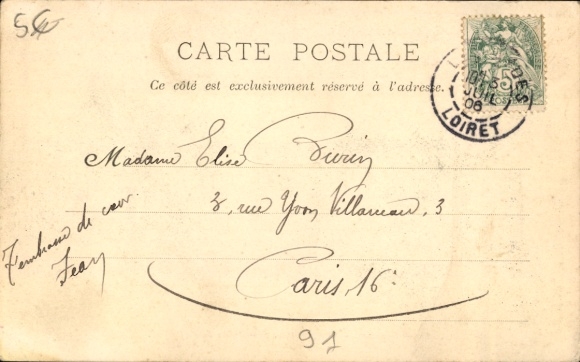 5€
CARTE POSTALE
Ce côté est exclusivement réservé à l'adresse.
5
JUIL
06
LOIRET
Madame Elise
3, rue Yvon Villarceau, 3
Paris, 16e
T'embrasse de cœur
Jean
91